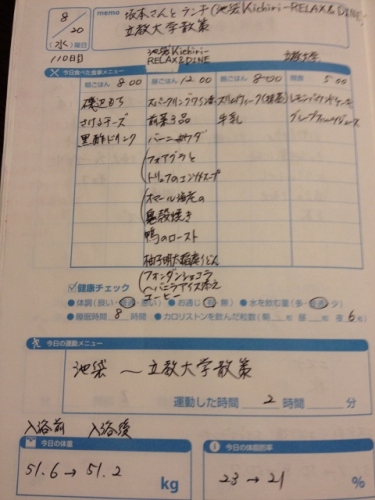 8/20
(水)曜日
110日目
memo
坂本さんとランチ(池袋Kichiri-RELAX&DINE)
立教大学散策
池袋Kichiri-RELAX&DINE
立教大学
今日食べた食事メニュー
朝ごはん 8:00
昼ごはん 12:00
晩ごはん 8:00
間食 5:00
磯辺もち
さけるチーズ
黒酢ドリンク
スパークリングワイン
前菜3品
バーニャカウダ
フォアグラと
トリュフのコンソメスープ
オマール海老の
鬼殻焼き
鴨のロースト
柚子明太稲庭うどん
フォンダンショコラ
〜バニラアイス添え
コーヒー
牛乳
レモンパウンドケーキ
グレープフルーツジュース
健康チェック
●体調(良い・普通・悪い) ●お通じ(有・無) ●水を飲む量(多・普通・少)
●睡眠時間 8 時間 ●カロリストンを飲んだ粒数(朝 昼 夜 6)
今日の運動メニュー
池袋〜立教大学散策
運動した時間 2 時間 分
入浴前 入浴後
今日の体重
51.6→51.2 kg
今日の体脂肪率
23→21 %